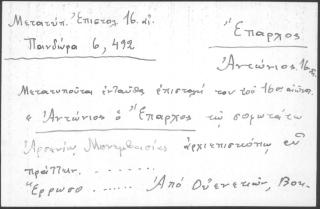 Μετατύπ. Ἐπιστολ. 16. αἰ.
Πανδώρα 6, 492
Ἔπαρχος
Ἀντώνιος 16. αἰ.
Μετατυποῦται ἐνταῦθα ἐπιστολή του τοῦ 16ου αἰῶνος.
« Ἀντώνιος ὁ Ἔπαρχος τῷ σοφωτάτῳ
Ἀρσενίῳ Μονεμβασίας ἀρχιεπισκόπῳ εὖ
πράττειν. . . . . . . .
Ἔρρωσο . . . . . . Ἀπὸ Οὐενετιῶν,